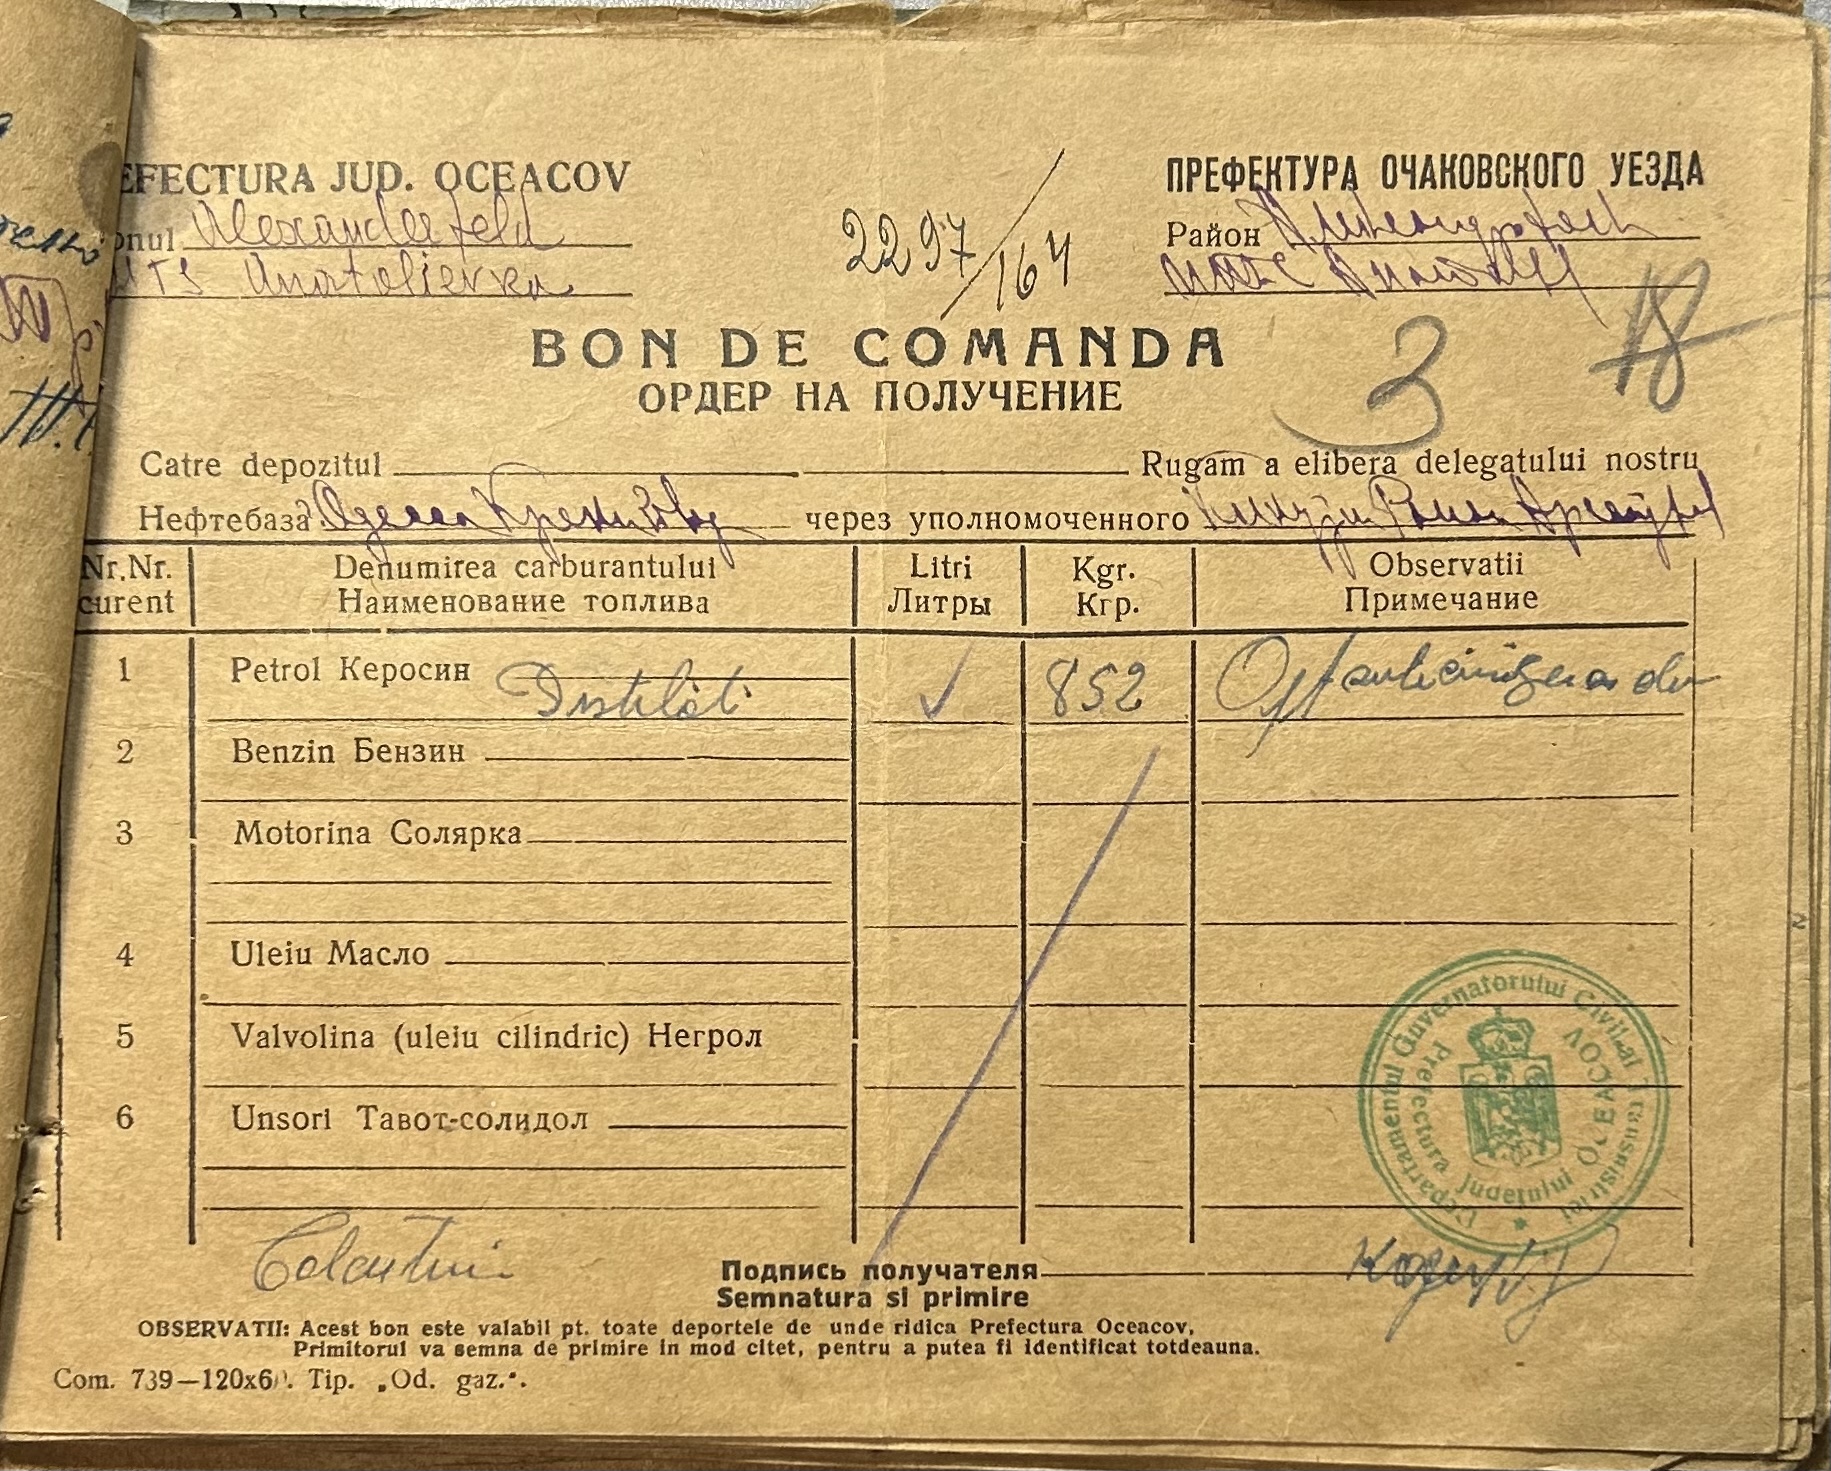 EFECTURA JUD. OCEACOV
onul Alexanderfeld
MTS Anatolievka
2297/164
ПРЕФЕКТУРА ОЧАКОВСКОГО УЕЗДА
Район
МТС
3
18
BON DE COMANDA
ОРДЕР НА ПОЛУЧЕНИЕ
Catre depozitul Rugam a elibera delegatului nostru
Нефтебаза Одесса через уполномоченного
Nr. Nr. Denumirea carburantului Litri Kgr. Observatii
curent Наименование топлива Литры Кгр. Примечание
1 Petrol Керосин Distilat 852 Opt sute cincizeci si doi
2 Benzin Бензин
3 Motorina Солярка
4 Uleiu Масло
5 Valvolina (uleiu cilindric) Негрол
6 Unsori Тавот-солидол
Departamentul Guvernatorului Civil al Transnistriei
Prefectura Judetului OCEACOV
Подпись получателя
Semnatura si primire
OBSERVATII: Acest bon este valabil pt. toate deportele de unde ridica Prefectura Oceacov,
Primitorul va semna de primire in mod citet, pentru a putea fi identificat totdeauna.
Com. 739—120x60. Tip. „Od. gaz.“.